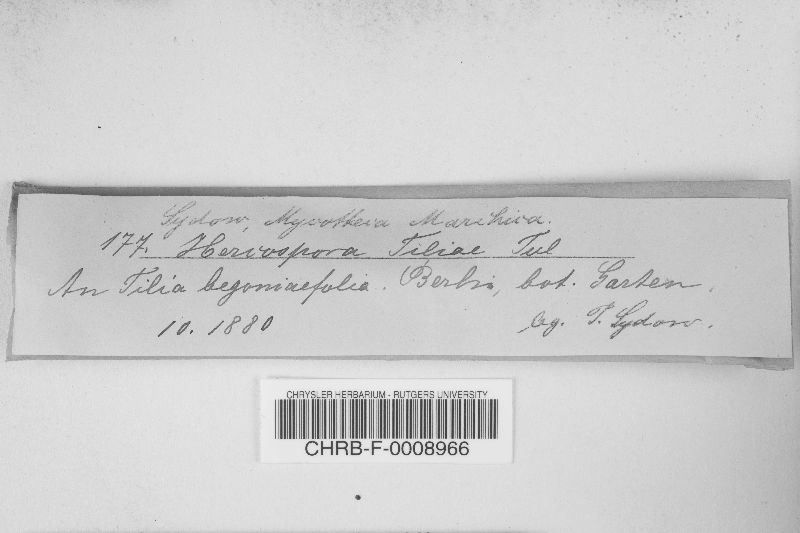 Sydow, Mycotheca Marchica.
177. Hercospora Tiliae Tul
An Tilia begoniaefolia. Berlin, bot. Garten.
10. 1880 leg. P. Sydow.
CHRYSLER HERBARIUM - RUTGERS UNIVERSITY
CHRB-F-0008966